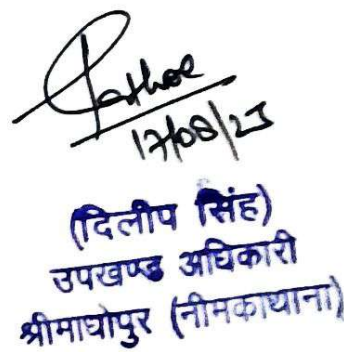 17/08/23
(दिलीप सिंह)
उपखण्ड अधिकारी
श्रीमाधोपुर (नीमकाथाना)